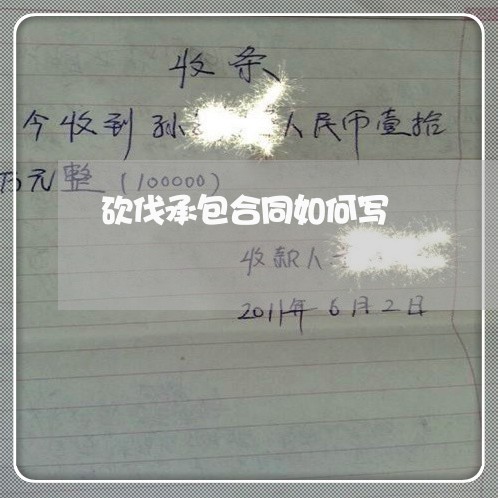 收条
今收到孙 人民币壹拾
万元整(100000)
砍伐承包合同如何写
收款人
2011年6月2日